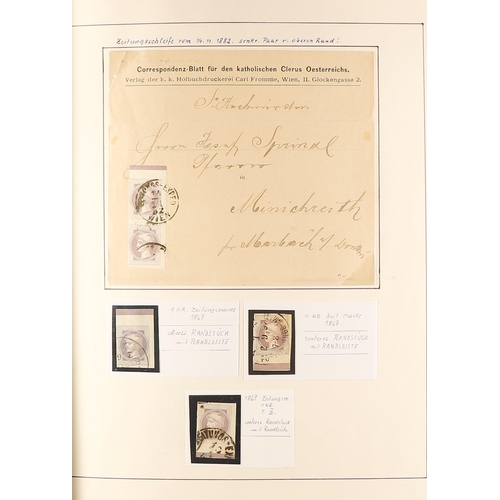 Zeitungsschleife vom 14.11.1882. senkr. Paar v. oberen Rand!
Correspondenz-Blatt für den katholischen Clerus Oesterreichs.
Verlag der k. k. Hofbuchdruckerei Carl Fromme, Wien, II. Glockengasse 2.
Sr. Hochwürden
Herrn Josef Spreindl
Pfarrer
in
Minichreith
per Marbach a/ Donau
WIEN
1 KR. Zeitungsmarke
1867
oberes RANDSTÜCK
mit RANDLEISTE
1867
unteres RANDSTÜCK
mit RANDLEISTE
1867 Zeitungsm.
T. II.
unteres Randstück